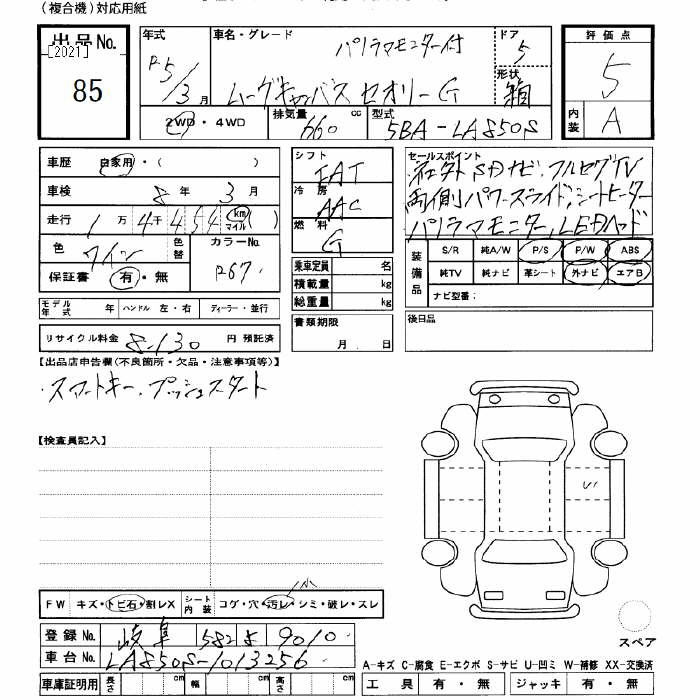 (複合機)対応用紙
出品No.
[2021]
85
年式
R5/3月
車名・グレード
パノラマモニター付
ムーヴキャンバス セオリーG
ドア
5
形状
箱
2WD・4WD
排気量 660 cc
型式 5BA-LA850S
評価点
5
内装 A
車歴 自家用・( )
車検 8年 3月
走行 1万4千454 km マイル ( )
色 ワイン 色替
カラーNo. R67
保証書 有・無
モデル年式 年 ハンドル 左・右 ディーラー・並行
リサイクル料金 8,130 円 預託済
シフト IAT
冷房 AAC
燃料 G
乗車定員 名
積載量 kg
総重量 kg
書類期限
月 日
セールスポイント
ネクストSDナビ・フルセグTV
両側パワースライド,シートヒーター
パノラマモニター,LEDヘッド
装備品
S/R 純A/W P/S P/W ABS
純TV 純ナビ 革シート 外ナビ エアB
ナビ型番:
後日品
【出品店申告欄(不良箇所・欠品・注意事項等)】
・スマートキー・プッシュスタート
【検査員記入】
FW キズ・トビ石・割レX シート内装 コゲ・穴・汚レ・シミ・破レ・スレ
登録No. 岐阜 582 を 9010
車台No. LA850S-1013256
車庫証明用 長さ cm 幅 cm 高さ cm
スペア
A-キズ C-腐食 E-エクボ S-サビ U-凹ミ W-補修 XX-交換済
工具 有・無 ジャッキ 有・無